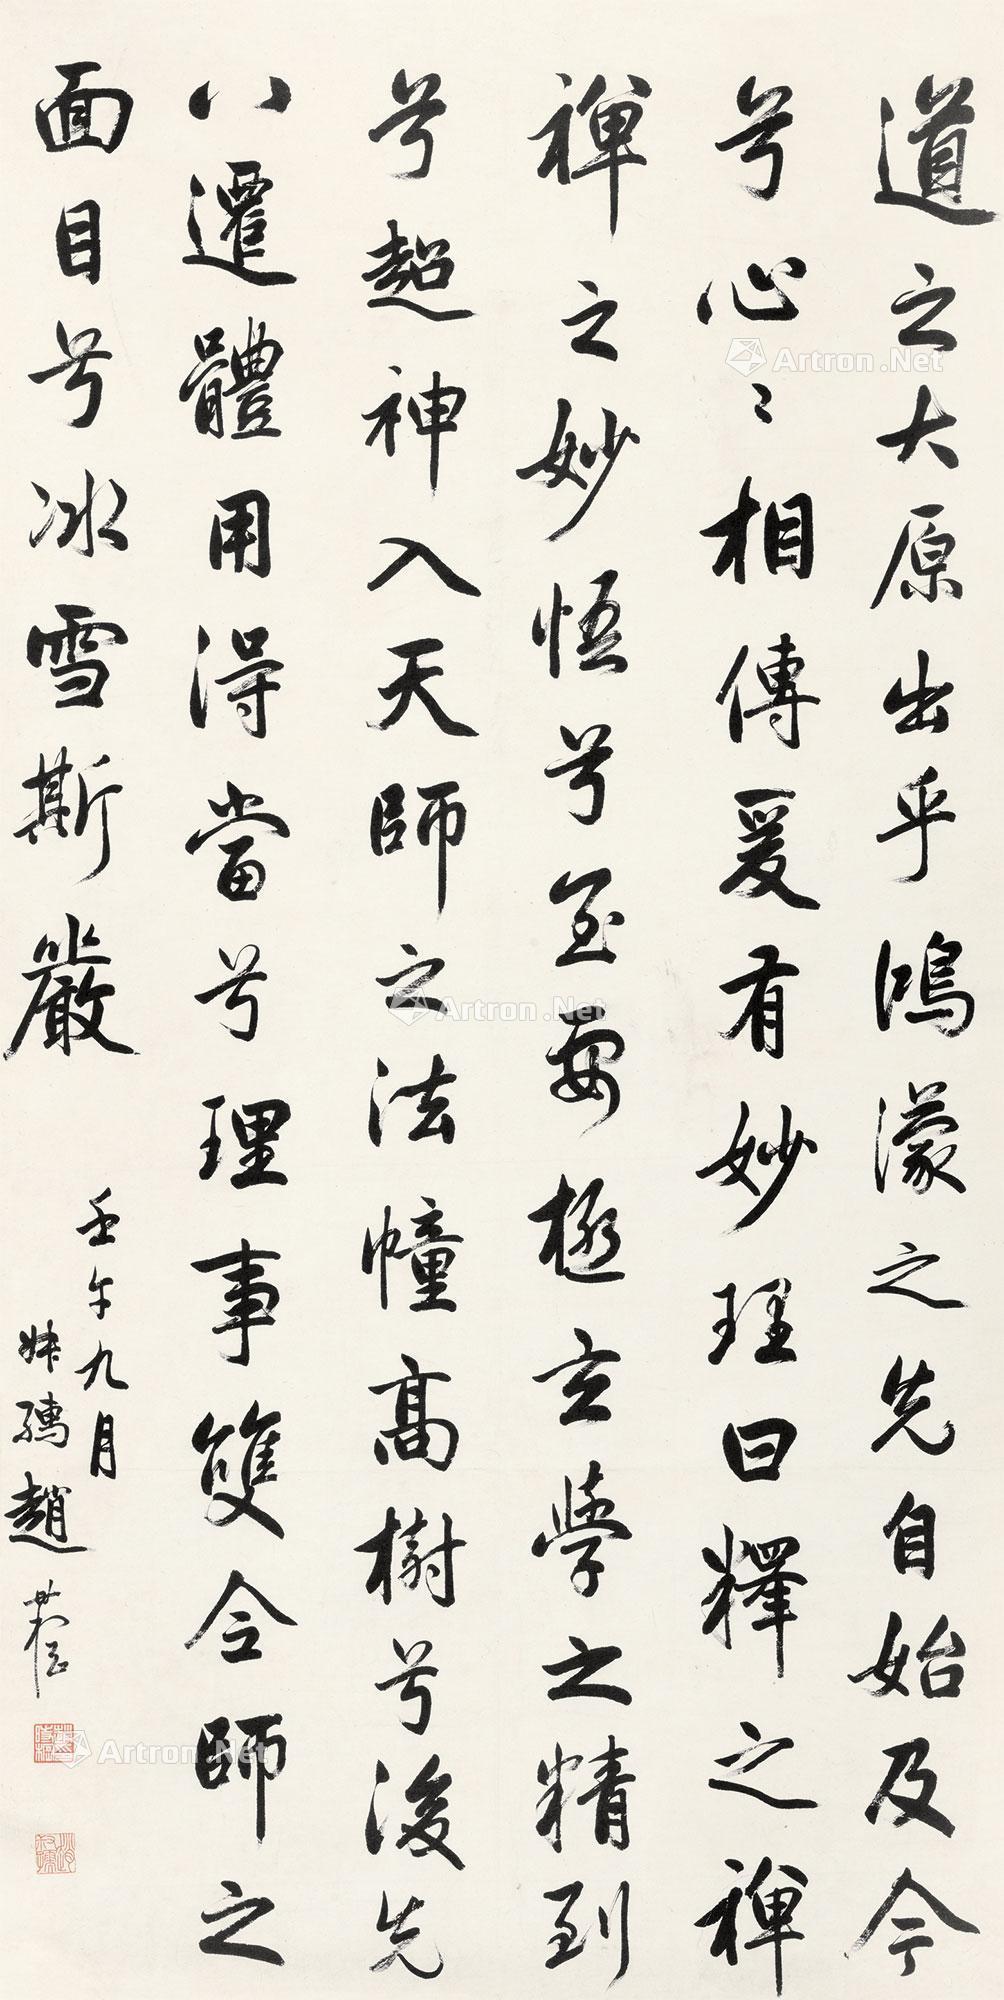 道之大原出乎鴻濛之先自始及今
兮心〻相傳爰有妙理曰釋之禪
禪之妙悟兮至要極玄學之精到
兮超神入天師之法幢高樹兮後先
八遷體用得當兮理事雙合師之
面目兮冰雪斯嚴
壬午九月
叔孺趙
Artron.Net
Artron.Net
Artron.Net
Artron.Net